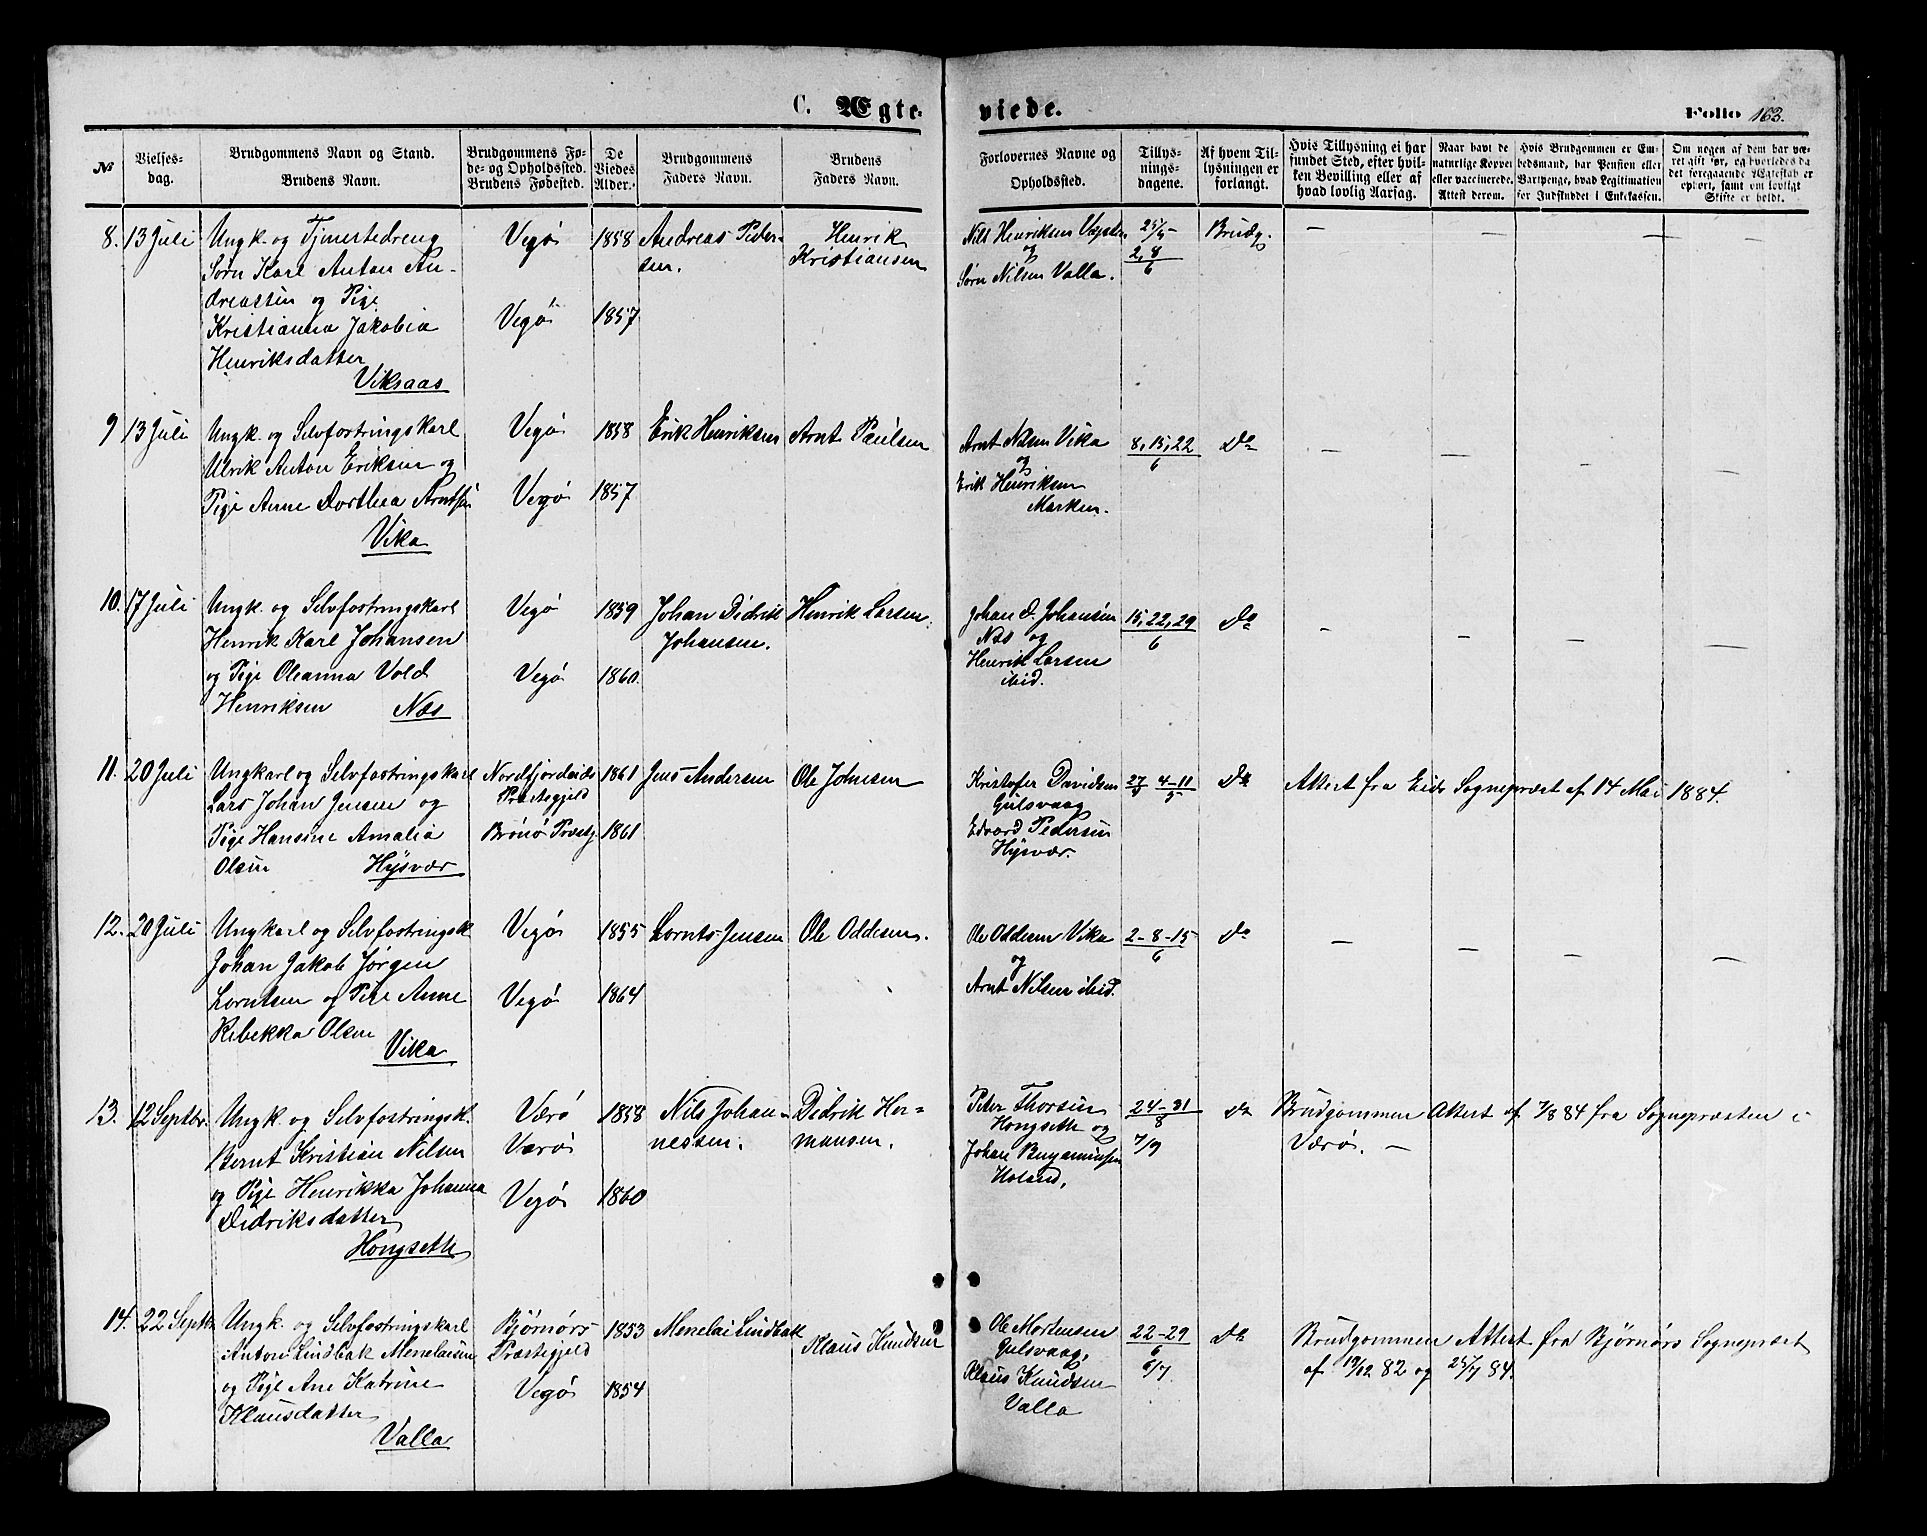 C. Ægte-
viede.
Folio 163.
№
Vielses-
dag.
Brudgommens Navn og Stand.
Brudens Navn.
Brudgommens Fø-
de- og Opholdssted.
Brudens Fødested.
De
Viedes
Alder.
Brudgommens
Faders Navn.
Brudens
Faders Navn.
Forlovernes Navne og
Opholdssted.
Tillys-
nings-
dagene.
Af hvem Til-
lysningen er
forlangt.
Hvis Tillysning ei har
fundet Sted, efter hvil-
ken Bevilling eller af
hvad lovlig Aarsag.
Naar havt de
naturlige Kopper
eller vaccinerede.
Attest derom.
Hvis Brudgommen er Em-
bedsmand, har Pension eller
Vartpenge, hvad Legitimation
for Indskuddet i Enkekassen.
Om nogen af dem har væ-
ret gift før, og hvorledes da
det foregaaende Ægteskab er
ophørt, samt om lovligt
Skifte er holdt.
8. 13 Juli
Ungk. og Tjenestedreng
Sørn Karl Anton An-
dreassen og Pige
Kristianna Jakobia
Henriksdatter
Viksaas
Vegø
Vegø
1858
1857
Andreas Peder-
sen.
Henrik
Kristiansen
Nils Henriksen
og
Sørn Nilsen Valla.
25/5
2, 8
6
Brudg.
9 13 Juli
Ungk. og Selvfostringskarl
Ulrik Anton Eriksen og
Pige Anne Dorthea Arntsen
Vika
Vegø
Vegø
1858
1857
Erik Henriksen
Arnt Paulsen
Arnt Nilsen Vika
og
Erik Henriksen
Marken.
8, 15, 22
6
Do
10. 17 Juli
Ungk. og Selvfostringskarl
Henrik Karl Johansen
og Pige Oleanna Vold
Henriksen
Næs
Vegø
Vegø
1859
1860.
Johan Didrik
Johansen.
Henrik Larsen.
Johan D. Johansen
Næs og
Henrik Larsen
ibid.
15, 22, 29
6
Do
11. 20 Juli
Ungkarl og Selvfostringskarl
Lars Johan Jensen og
Pige Hansine Amalia
Olsen
Hysvær
Nordfjordeids
Præstegjeld
Brønø Præstgj
1861
1861
Jens Andersen
Ole Johnsen
Kristofer Davidsen
Gulsvaag
Edvard Pedersen
Hysvær.
27/4 4-11
5
Do
Attest fra Eids Sognepræst af 14 Mai 1884.
12. 20 Juli
Ungkarl og Selvfostringsk.
Johan Jakob Jørgen
Lorntsen og Pige Anne
Rebekka Olsen
Vika
Vegø
Vegø
1855
1864
Lornts Jensen
Ole Oddesen.
Ole Oddesen Vika
og
Arnt Nilsen ibid.
2-8-15
6
Do
13. 12 Septbr.
Ungk. og Selvfostringsk.
Bernt Kristian Nilsen
og Pige Henrikka Johanna
Didriksdatter
Hongseth
Værø
Værø
Vegø
1858
1860
Nils Johan-
nessen.
Didrik Her-
mansen.
Peter Thorsen
Hongseth og
Johan Benjaminsen
Holand,
24-31
8
7/9
Do
Brudgommen Attest af 7/8 84 fra Sognepræsten i
Værø. -
14. 22 Septbr
Ungk. og Selvfostringskarl
Anton Lindbak Menelaisen
og Pige Ane Katrine
Klausdatter
Valla
Bjørnørs
Præstegjeld
Vegø
1853
1854
Menelai Lindbak
Klaus Knudsen
Ole Mortensen
Gulsvaag,
Klaus Knudsen
Valla
22-29
6
6/7
Do
Brudgommen Attest fra Bjørnørs Sognepræst
af 19/12 82 og 25/7 84.